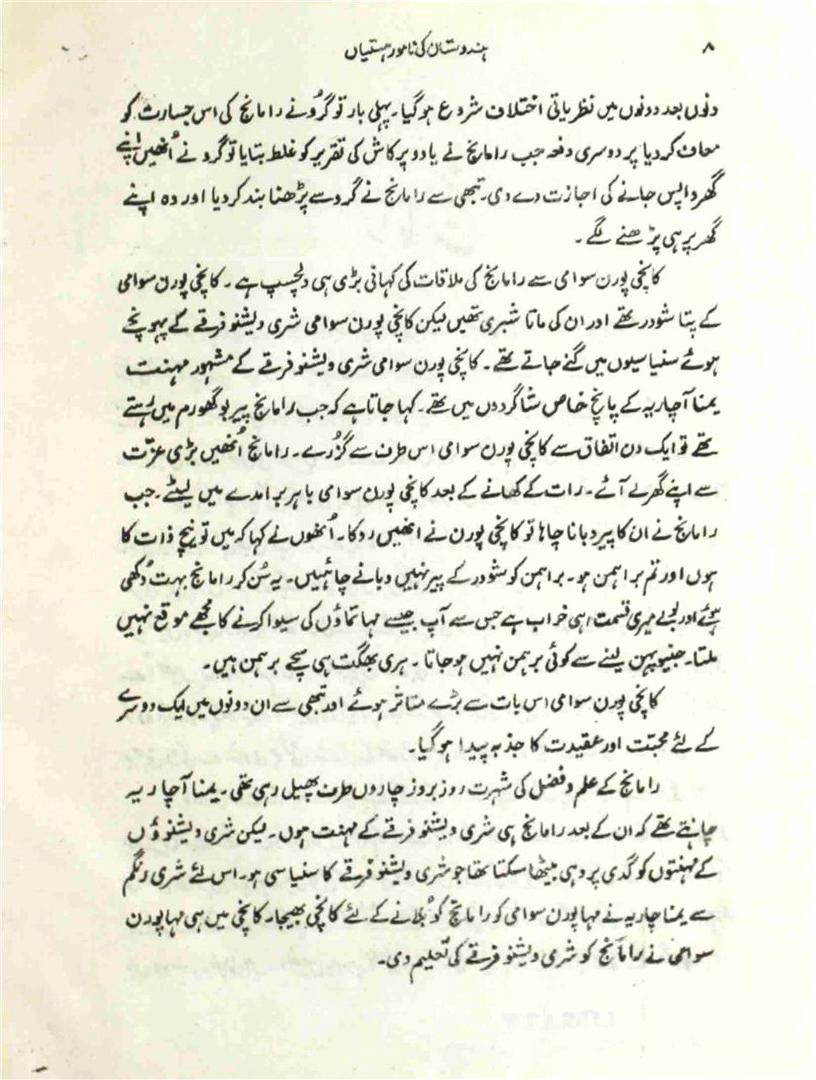 ۸
ہندوستان کی نامور ہستیاں
دنوں بعد دونوں میں نظریاتی اختلاف شروع ہوگیا۔ پہلی بار تو گُرو نے رامانج کی اس جسارت کو
معاف کردیا پر دوسری دفعہ جب رامانج نے یادو پرکاش کی تقریر کو غلط بتایا تو گرو نے اُنھیں اپنے
گھر واپس جانے کی اجازت دے دی۔ تبھی سے رامانج نے گرو سے پڑھنا بند کردیا اور وہ اپنے
گھر پر ہی پڑھنے لگے۔
کانچی پورن سوامی سے رامانج کی ملاقات کی کہانی بڑی ہی دلچسپ ہے۔ کانچی پورن سوامی
کے پتا شودر تھے اور ان کی ماتا شبری تھیں لیکن کانچی پورن سوامی شری ویشنو فرقے کے پہونچے
ہوئے سنیاسیوں میں گنے جاتے تھے۔ کانچی پورن سوامی شری ویشنو فرقے کے مشہور مہنت
یمنا آچاریہ کے پانچ خاص شاگردوں میں تھے۔ کہا جاتا ہے کہ جب رامانج پیر پوگھورم میں رہتے
تھے تو ایک دن اتفاق سے کانچی پورن سوامی اس طرف سے گزرے۔ رامانج اُنھیں بڑی عزّت
سے اپنے گھر لے آئے۔ رات کے کھانے کے بعد کانچی پورن سوامی باہر برامدے میں لیٹے۔ جب
رامانج نے ان کا پیر دبانا چاہا تو کانچی پورن نے انھیں روکا۔ اُنھوں نے کہا کہ میں تو نیچ ذات کا
ہوں اور تم براہمن ہو۔ براہمن کو شودر کے پیر نہیں دبانے چاہئیں۔ یہ سُن کر رامانج بہت دُکھی
ہوئے اور بولے میری قسمت ہی خراب ہے جس سے آپ جیسے مہاتماؤں کی سیوا کرنے کا مجھے موقع نہیں
ملتا۔ جنیو پہن لینے سے کوئی برہمن نہیں ہوجاتا۔ ہری بھگت ہی سچے برہمن ہیں۔
کانچی پورن سوامی اس بات سے بڑے متاثر ہوئے اور تبھی سے ان دونوں میں ایک دوسرے
کے لئے محبّت اور عقیدت کا جذبہ پیدا ہوگیا۔
رامانج کے علم و فضل کی شہرت روز بروز چاروں طرف پھیل رہی تھی۔ یمنا آچاریہ
چاہتے تھے کہ ان کے بعد رامانج ہی شری ویشنو فرقے کے مہنت ہوں۔ لیکن شری ویشنوؤں
کے مہنتوں کو گدی پر وہی بیٹھا سکتا تھا جو شری ویشنو فرقے کا سنیاسی ہو۔ اس لئے شری رنگم
سے یمنا چاریہ نے مہاپورن سوامی کو رامانج کو بُلانے کے لئے کانچی بھیجا۔ کانچی میں ہی مہاپورن
سوامی نے رامانج کو شری ویشنو فرقے کی تعلیم دی۔